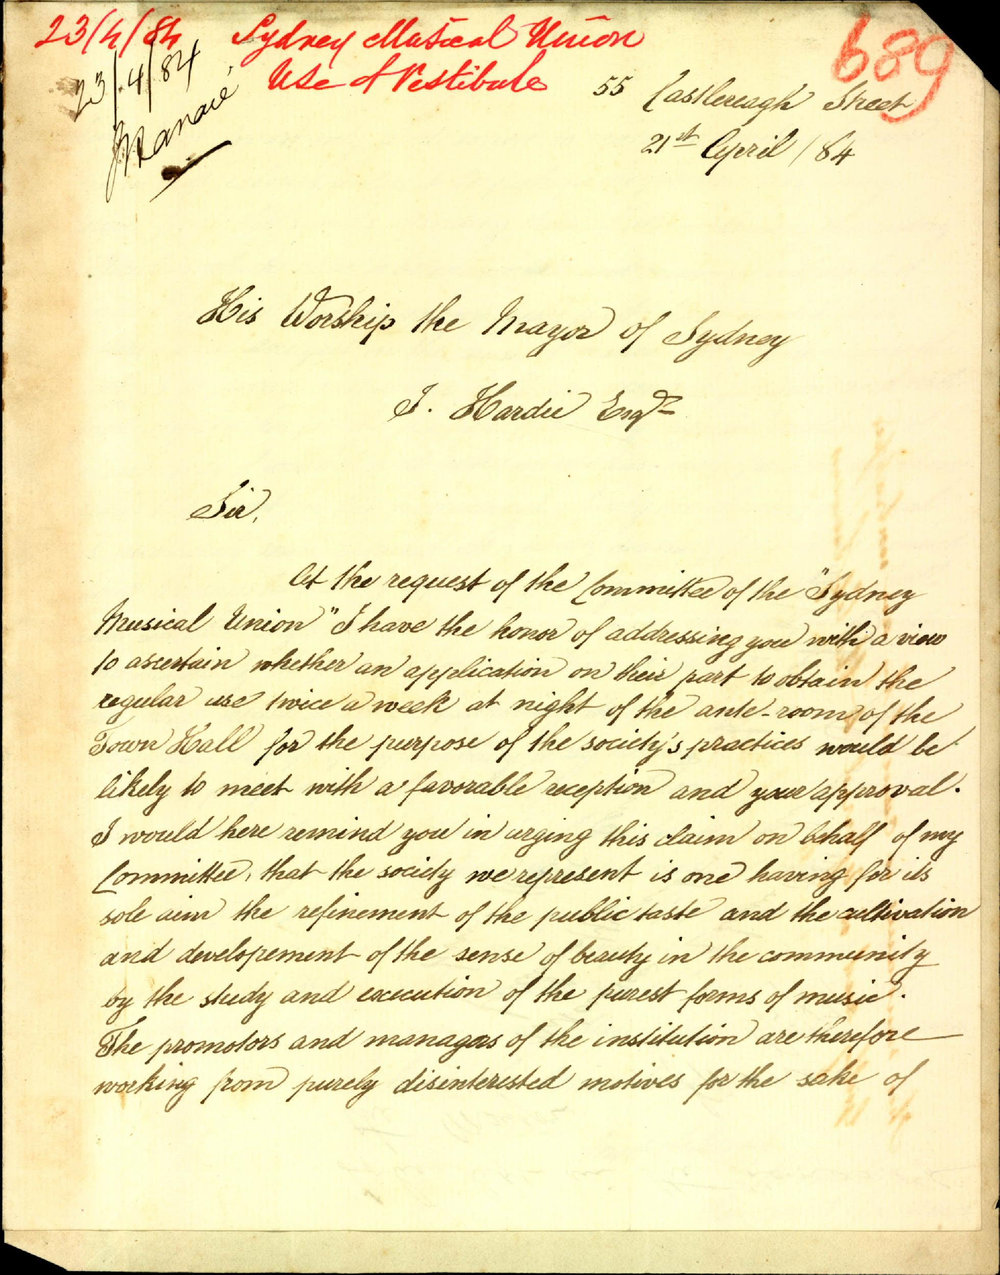 23/4/84 Sydney Musical Union
Use of Vestibule
689
23/4/84
55 Castlereagh Street
21st April /84
His Worship the Mayor of Sydney
J. Hardie Esqr
Sir,
At the request of the Committee of the "Sydney
Musical Union" I have the honor of addressing you with a view
to ascertain whether an application on their part to obtain the
regular use twice a week at night of the ante-room of the
Town Hall for the purpose of the society's practices would be
likely to meet with a favorable reception and your approval.
I would here remind you in urging this claim on behalf of my
Committee, that the society we represent is one having for its
sole aim the refinement of the public taste and the cultivation
and developement of the sense of beauty in the community
by the study and execution of the purest forms of music.
The promotors and managers of the institution are therefore
working from purely disinterested motives for the sake of